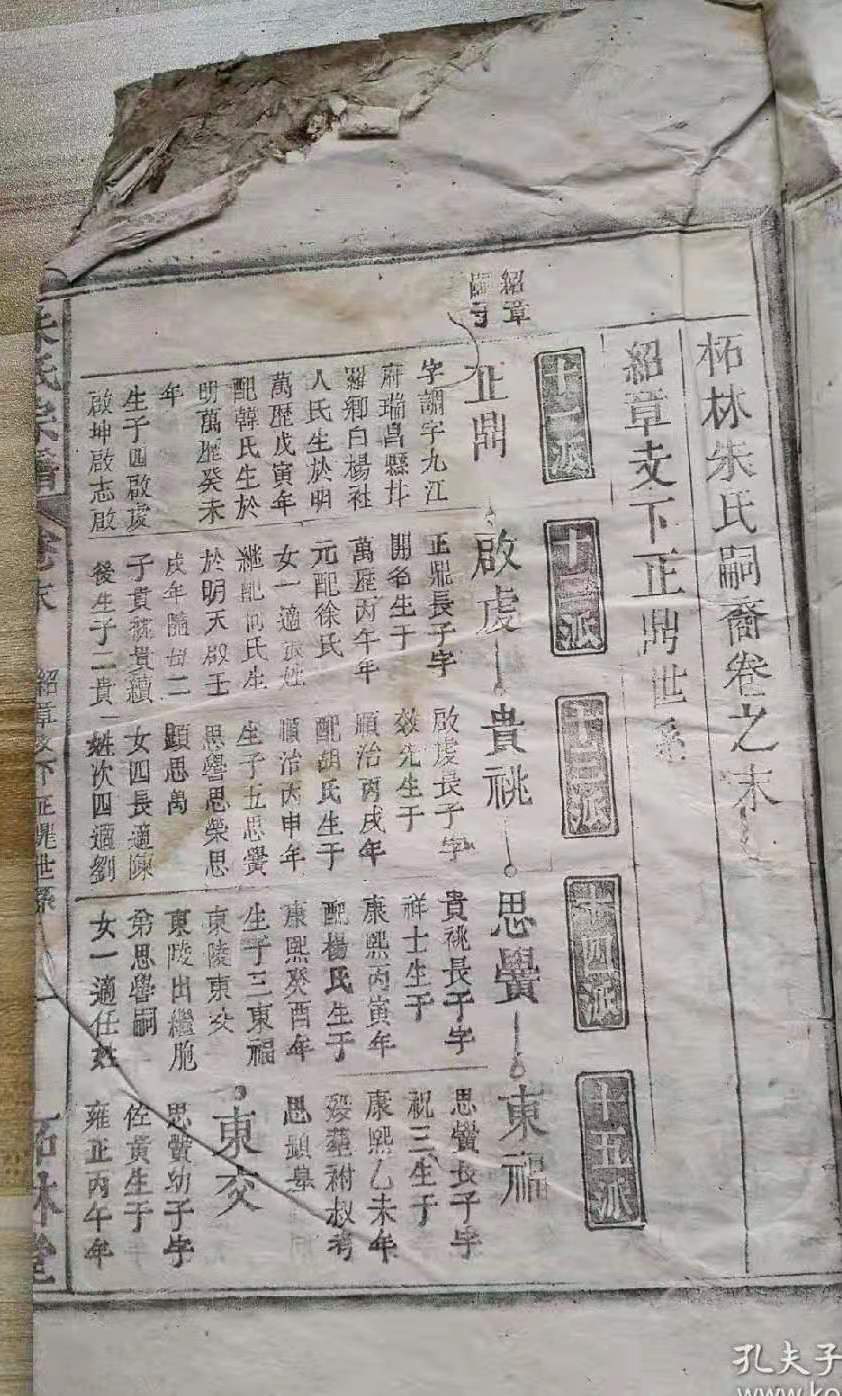 柘林朱氏嗣裔卷之末
紹章支下正鼎世系
十一派
十二派
十三派
十四派
十五派
紹章
嗣子
正鼎
字調字九江
府瑞昌縣
鄉白楊社
人氏生於明
萬歷戊寅年
配韓氏生於
明萬歷癸未
年
生子四啟虔
啟坤啟志啟
啟虔
正鼎長子字
開名生于
萬歷丙午年
元配徐氏
女一適張姓
繼配何氏生
於明天啟壬
戌年隨母二
子貴祧貴續
後生子二貴
貴祧
啟虔長子字
效先生于
順治丙戌年
配胡氏生于
順治丙申年
生子五思黌
思譽思榮思
顕思萬
女四長適陳
姓次四適劉
思黌
貴祧長子字
祥士生于
康熙丙寅年
配楊氏生于
康熙癸酉年
生子三東福
東陵東交
東陵出繼胞
弟思譽嗣
女一適任姓
東福
思黌長子字
祝三生于
康熙乙未年
歿葬祔叔考
思顕
東交
思黌幼子字
佐黃生于
雍正丙午年
朱氏宗譜
卷末
紹章支下正鼎世系
一
柘林堂
孔夫子